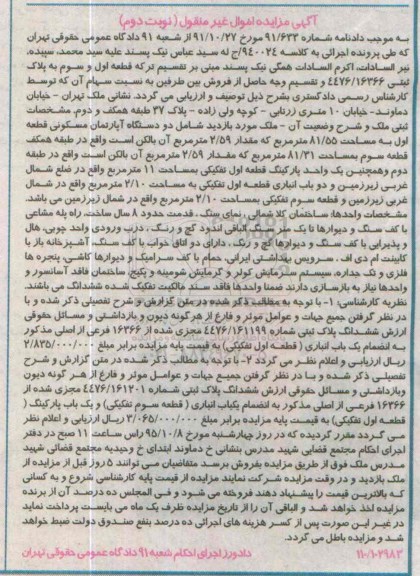 آگهی مزایده اموال غیر منقول (نوبت دوم)
به موجب دادنامه شماره ۹۱/۶۳۳ مورخ ۹۱/۱۰/۲۷ از شعبه ۹۱ دادگاه عمومی حقوقی تهران
که طی پرونده اجرائی به کلاسه ۹۴۰۰۲۴/ج له سید عباس نیک پسند علیه سید محمد، سپیده،
نیر السادات، اکرم السادات همگی نیک پسند مبنی بر تقسیم ترکه قطعه اول و سوم به پلاک
ثبتی ۴۴۷۶/۱۶۳۶۶ و تقسیم وجه حاصل از فروش بین طرفین به نسبت سهام آن که توسط
کارشناس رسمی دادگستری بشرح ذیل توصیف و ارزیابی می گردد. نشانی ملک تهران - خیابان
دماوند- خیابان ۱۰ متری زرنابی - کوچه ولی زاده - پلاک ۳۷ طبقه همکف و دوم. مشخصات
ثبتی ملک و شرح وضعیت آن - ملک مورد بازدید شامل دو دستگاه آپارتمان مسکونی قطعه
اول به مساحت ۸۱/۵۵ مترمربع که مقدار ۲/۵۹ مترمربع آن بالکن است واقع در طبقه همکف
قطعه سوم بمساحت ۸۱/۳۱ مترمربع که مقدار ۲/۵۹ مترمربع آن بالکن است واقع در طبقه
دوم وهمچنین یک واحد پارکینگ قطعه اول تفکیکی بمساحت ۱۱ مترمربع واقع در ضلع شمال
غربی زیرزمین و دو باب انباری قطعه اول تفکیکی به مساحت ۲/۱۰ مترمربع واقع در شمال
غربی زیرزمین و قطعه سوم تفکیکی بمساحت ۲/۱۰ مترمربع واقع در شمال زیرزمین می باشد.
مشخصات واحدها: ساختمان کلا شمالی، نمای سنگ، قدمت حدود ۸ سال ساخت، راه پله مشاعی
با کف سنگ و دیوارها تا یک متر سنگ الباقی اندود گچ و رنگ، درب ورودی واحد چوبی، هال
و پذیرایی با کف سنگ و دیوارها گچ و رنگ، دارای دو اتاق خواب با کف سنگ، آشپزخانه باز با
کابینت ام دی اف، سرویس بهداشتی ایرانی، حمام با کف سرامیک و دیوارها کاشی، پنجره ها
فلزی و تک جداره، سیستم سرمایش کولر و گرمایش شومینه و پکیج، ساختمان فاقد آسانسور و
واحدها نیاز به بازسازی دارند ضمنا واحدها فاقد سند مالکیت تفکیک شده ششدانگ می باشند.
نظریه کارشناسی: ۱- با توجه به مطالب ذکر شده در متن گزارش و شرح تفصیلی ذکر شده و با
در نظر گرفتن جمیع جهات و عوامل موثر و فارغ از هرگونه دیون و بازداشتی و مسائل حقوقی
ارزش ششدانگ پلاک ثبتی شماره ۴۴۷۶/۱۶۱۱۹۹ مجزی شده از ۱۶۳۶۶ فرعی از اصلی مذکور
به انضمام یک باب انباری (قطعه اول تفکیکی) به قیمت پایه مزایده برابر مبلغ ۲/۸۳۵/۰۰۰/۰۰۰
ریال ارزیابی و اعلام نظر می گردد ۲- با توجه به مطالب ذکر شده در متن گزارش و شرح
تفصیلی ذکر شده و با در نظر گرفتن جمیع جهات و عوامل موثر و فارغ از هر گونه دیون
وبازداشتی و مسائل حقوقی ارزش ششدانگ پلاک ثبتی شماره ۴۴۷۶/۱۶۱۲۰۱ مجزی شده از
۱۶۳۶۶ فرعی از اصلی مذکور به انضمام یکباب انباری (قطعه سوم تفکیکی) و یک باب پارکینگ (
قطعه اول تفکیکی) به قیمت پایه مزایده برابر مبلغ ۳/۰۶۵/۰۰۰/۰۰۰ ریال ارزیابی و اعلام نظر
می گردد مقرر گردیده که در روز چهارشنبه مورخ ۹۵/۱۰/۸ راس ساعت ۱۱ صبح در دفتر
اجرای احکام مجتمع قضایی شهید مدرس بنشانی خ دماوند ابتدای خ وحیدیه مجتمع قضائی شهید
مدرس ملک فوق از طریق مزایده بفروش برسد متقاضیان می توانند ۵ روز قبل از مزایده از
ملک بازدید و در وقت مزایده شرکت نمایند مزایده از قیمت پایه کارشناسی شروع و به کسانی
که بالاترین قیمت را پیشنهاد دهند فروخته می شود و فی المجلس ده درصد آن از برنده
مزایده اخذ خواهد شد و الباقی آن را از تاریخ مزایده ظرف یک ماه می بایست پرداخت نماید
در غیر این صورت پس از کسر هزینه های اجرائی ده درصد بنفع صندوق دولت ضبط خواهد
شد و مزایده باطل می گردد.
۱۱۰/۱۰۲۹۸۳ دادورز اجرای احکام شعبه ۹۱ دادگاه عمومی حقوقی تهران